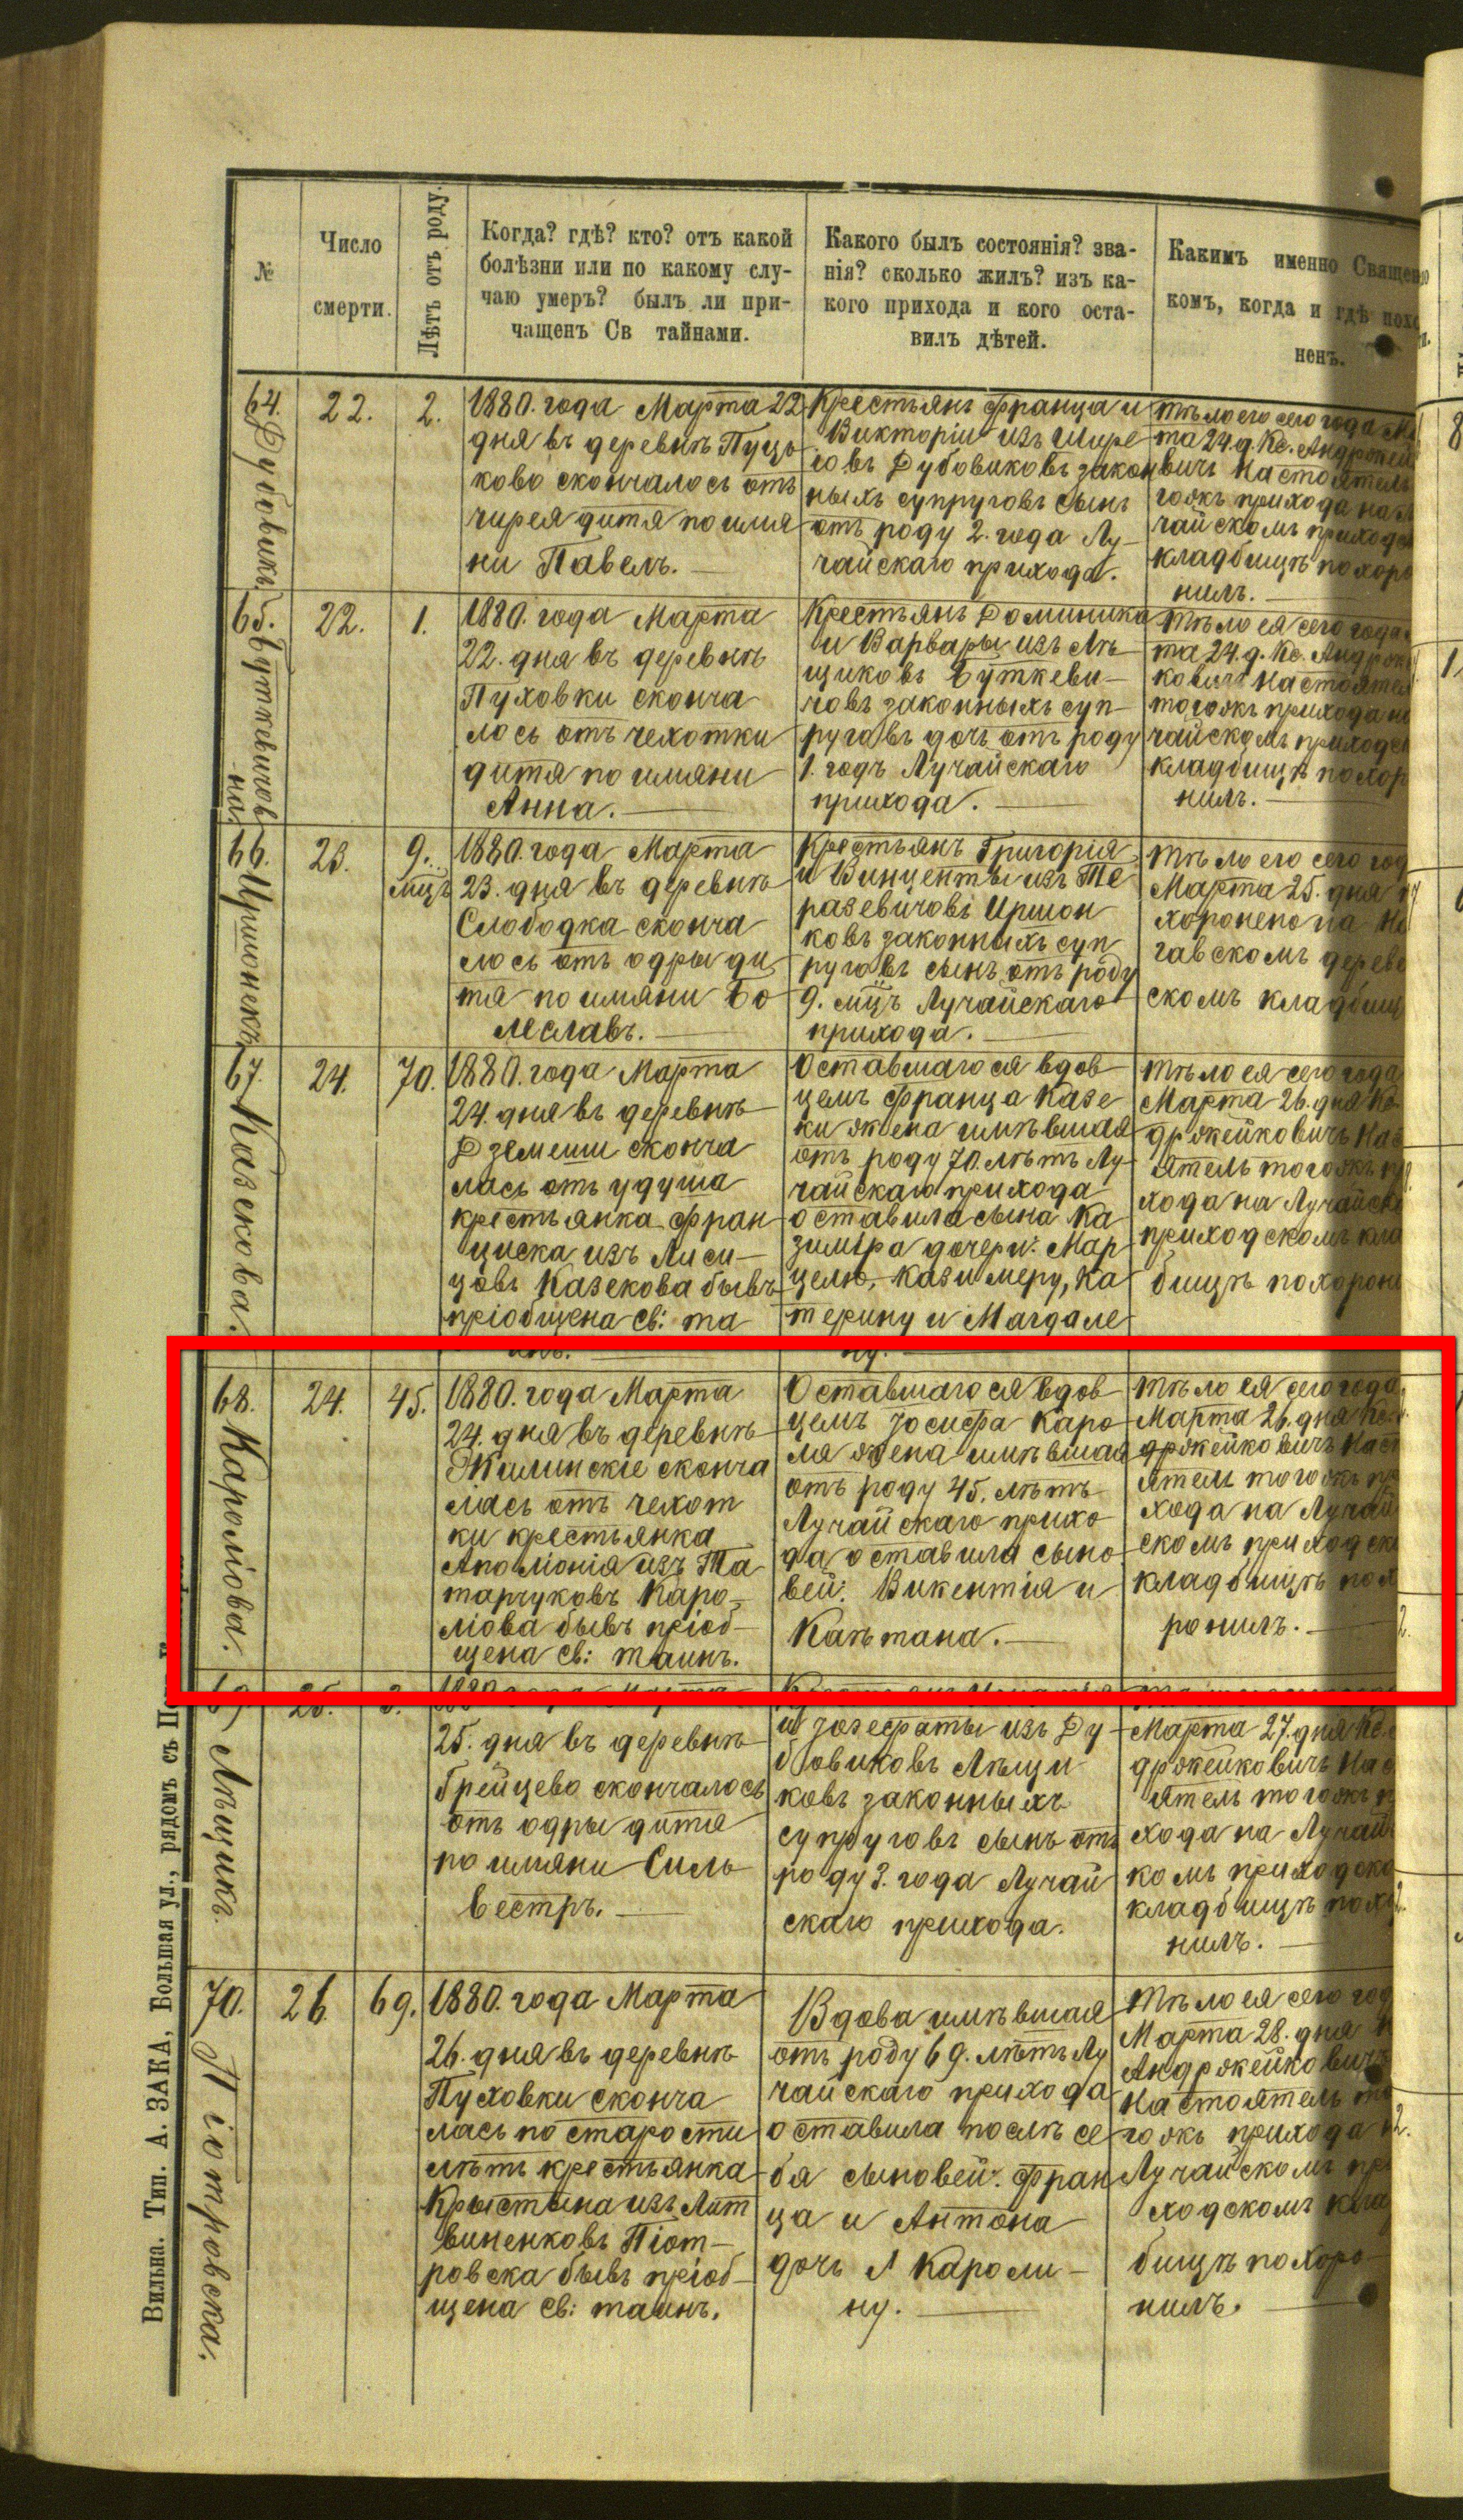 №
Число
смерти.
Лѣтъ отъ роду.
Когда? гдѣ? кто? отъ какой
болѣзни или по какому слу-
чаю умеръ? былъ ли при-
чащенъ Св тайнами.
Какого былъ состоянія? зва-
нія? сколько жилъ? изъ ка-
кого прихода и кого оста-
вилъ дѣтей.
Какимъ именно
комъ, когда и гдѣ
ненъ.
64.
Дубовикъ.
22.
2.
1880. года Марта 22
дня въ деревнѣ Пуць
ково скончалось отъ
чирея дитя по имя
ни Павелъ.
Крестьянъ Франца и
Викторіи изъ Шире
ховъ Дубовиковъ закон
ныхъ супруговъ сынъ
отъ роду 2. года Лу-
чайскаго прихода.
тѣло его сего года
та 24 д. Кс.
вичъ
гожъ прихода на
чайскомъ
кладбищѣ
нилъ.
65.
22.
1.
1880. года Марта
22. дня въ деревнѣ
Пуховки сконча
лось отъ чехотки
дитя по имяни
Анна.
Крестьянъ Доминика
и Варвары изъ Лѣ
щиковъ Буткеви-
човъ законныхъ суп-
руговъ дочь отъ роду
1. годъ Лучайскаго
прихода.
тѣло ея сего года
та 24. д. Кс.
ковичъ
тогожъ прихода
чайскомъ
кладбищѣ
нилъ.
66.
Иршонекъ.
23.
9.
мцъ
1880. года Марта
23. дня въ деревнѣ
Слободка сконча
лось отъ одры ди
тя по имяни Бо
леславъ.
Крестьянъ Григорія
и Винценты изъ Те
разевичовъ Иршон
ковъ законныхъ суп
руговъ сынъ отъ роду
9. мцъ Лучайскаго
прихода.
тѣло его сего год
Марта 25. дня
хоронено на
гавскомъ дерев
скомъ кладбищ
67.
Казекова.
24.
70.
1880. года Марта
24. дня въ деревнѣ
Дземеши сконча
лась отъ удуша
крестьянка Фран
циска изъ Лиси-
цовъ Казекова бывъ
пріобщена св: та
Оставшагося вдов
цемъ Франца Казе
ки жена имѣвшая
отъ роду 70. лѣтъ Лу-
чайскаго прихода
оставила сына Ка
зиміра дочери: Мар
целю, Казимеру, Ка
терину и Магдале
ну.
тѣло ея сего года
Марта 26. дня Кс.
држейковичъ
ятель тогожъ
хода на Лучайск
приходскомъ кла
бищѣ похорони
68.
Кароліова.
24.
45.
1880. года Марта
24. дня въ деревнѣ
Жилинскіе сконча
лась отъ чехот
ки крестьянка
Аполіонія изъ Та
тарчуковъ Каро-
ліова бывъ пріоб-
щена св: таинъ.
Оставшагося вдов
цемъ Іосифа Каро
ля жена имѣвшая
отъ роду 45. лѣтъ
Лучайскаго прихо
да оставила сыно
вей: Викентія и
Каѣтана.
тѣло ея сего года
Марта 26. дня Кс.
држейковичъ Наст
ятель тогожъ пр
хода на Лучай
скомъ приходск
кладбищѣ пох
ронилъ.
69.
Лѣщикъ.
25.
3.
25. дня въ деревнѣ
Грейцево скончалось
отъ одры дитя
по имяни Силь
вестръ.
и Іозефаты изъ Ду-
бовиковъ Лѣщи
ковъ законныхъ
супруговъ сынъ отъ
роду 3. года Лучай
скаго прихода.
Марта 27. дня Кс.
држейковичъ
ятель тогожъ
хода на Лучай
комъ приходско
кладбищѣ
нилъ.
70.
Піотровска.
26.
69.
1880. года Марта
26. дня въ деревнѣ
Пуховки сконча
лась по старости
лѣтъ крестьянка
Крыстына изъ Лит
виненковъ Піот-
ровска бывъ пріоб-
щена св: таинъ.
Вдова имѣвшая
отъ роду 69. лѣтъ Лу
чайскаго прихода
оставила послѣ се
бя сыновей: Фран
ца и Антона
дочь 1 Кароли-
ну.
тѣло ея сего год
Марта 28. дня
Андржейковичъ
Настоятель
гожъ прихода
Лучайскомъ
ходскомъ
бищѣ похоро
нилъ.
Вильна. Тип. А. ЗАКА, Большая ул., рядомъ съ